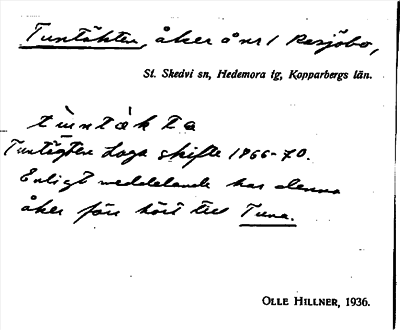 Tuntäkten, åker å nr 1 Resjöbo,
St. Skedvi sn, Hedemora tg, Kopparbergs län.
tùntàkta
Tuntägten Laga skifte 1866-70.
Enligt meddelande har denna
åker förr hört till Tuna.
OLLE HILLNER, 1936.